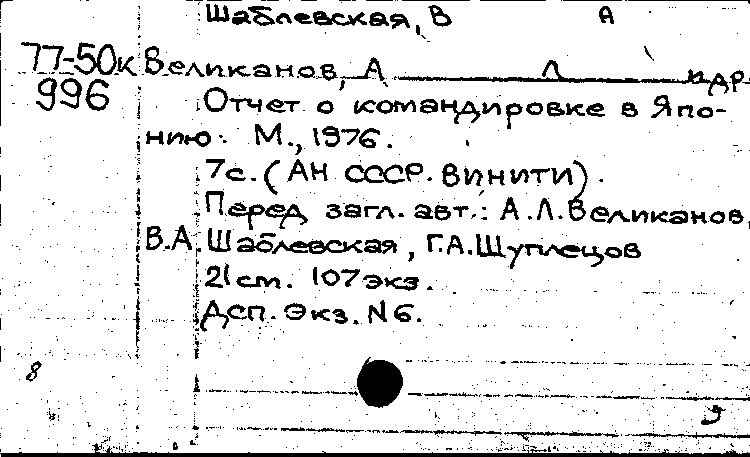 Шаблевская, В А
77-50к Великанов, А Л и др
996 Отчет о командировке в Япо-
нию. М., 1976.
7с. (АН СССР. ВИНИТИ).
Перед загл. авт.: А.Л.Великанов,
В.А.Шаблевская, Г.А.Щуплецов
21см. 107экз.
Дсп. Экз. N6.
8